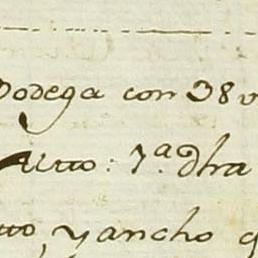 Bodega con 38 v
Alto: 7.ª dha
to, y ancho